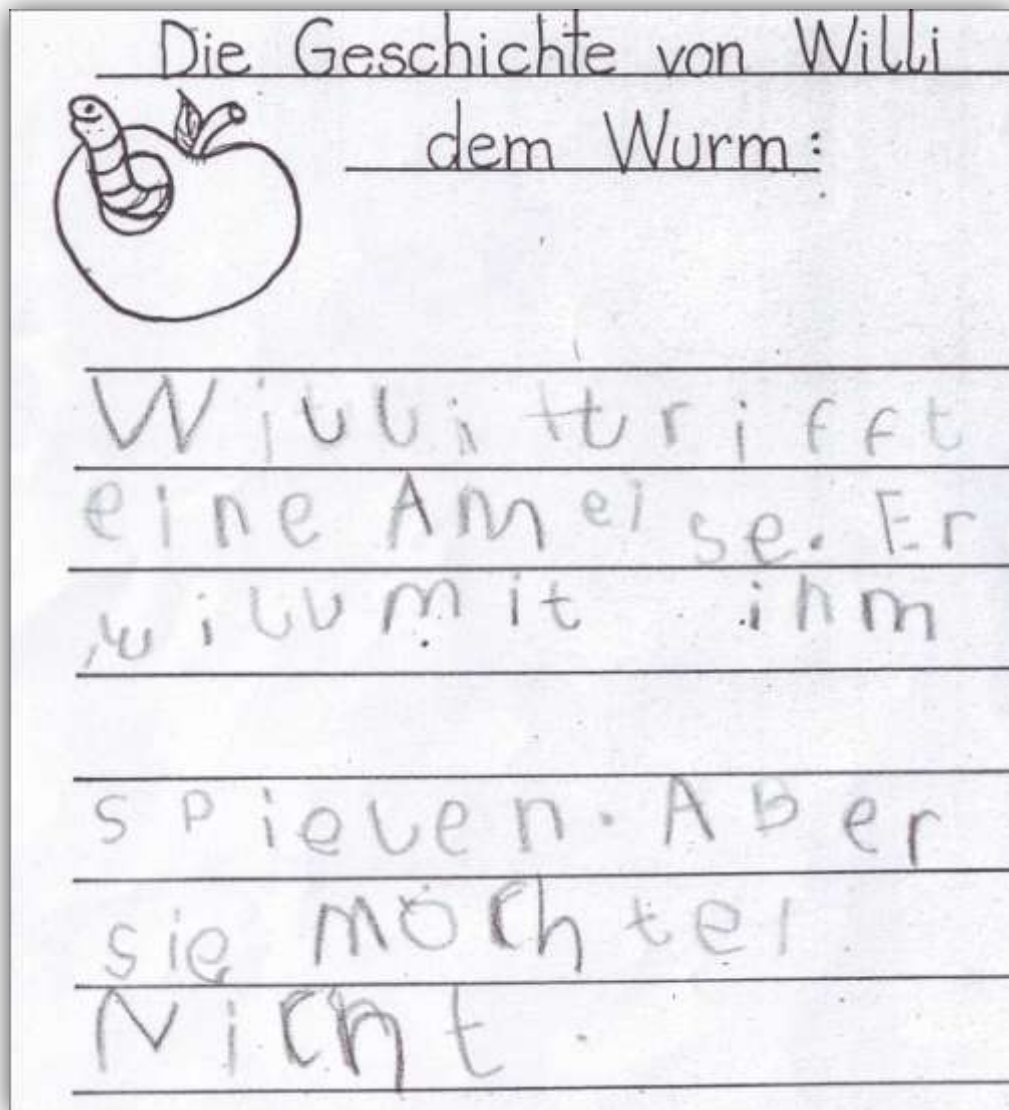 Die Geschichte von Willi
dem Wurm:
Willi ttrifft
eine AMeise. Er
will mit ihm
spielen. ABer
sie möchte
Nicht.